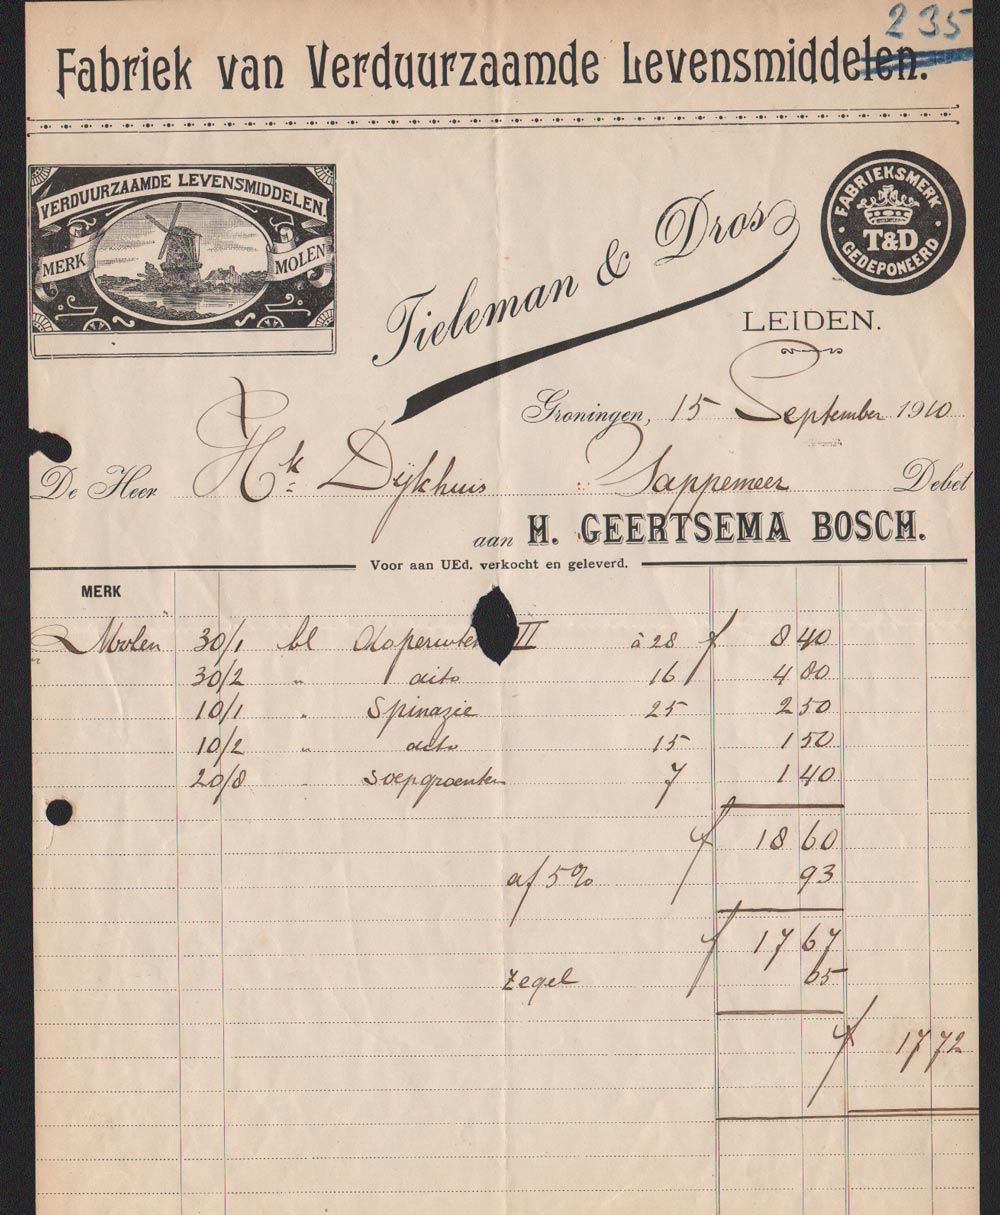 235
Fabriek van Verduurzaamde Levensmiddelen.
VERDUURZAAMDE LEVENSMIDDELEN.
MERK MOLEN
FABRIEKSMERK
T&D
GEDEPONEERD
Tieleman & Dros
LEIDEN.
Groningen, 15 September 1910
De Heer Hk Dijkhuis Sappemeer Debet
aan H. GEERTSEMA BOSCH.
Voor aan UEd. verkocht en geleverd.
MERK
Molen 30/1 bl II à 28 f 8 40
30/2 " dito 16 4 80
10/1 " Spinazie 25 2 50
10/2 " dito 15 1 50
20/8 Soepgroenten 7 1 40
f 18 60
af 5% 93
f 17 67
Zegel 05
f 17 72